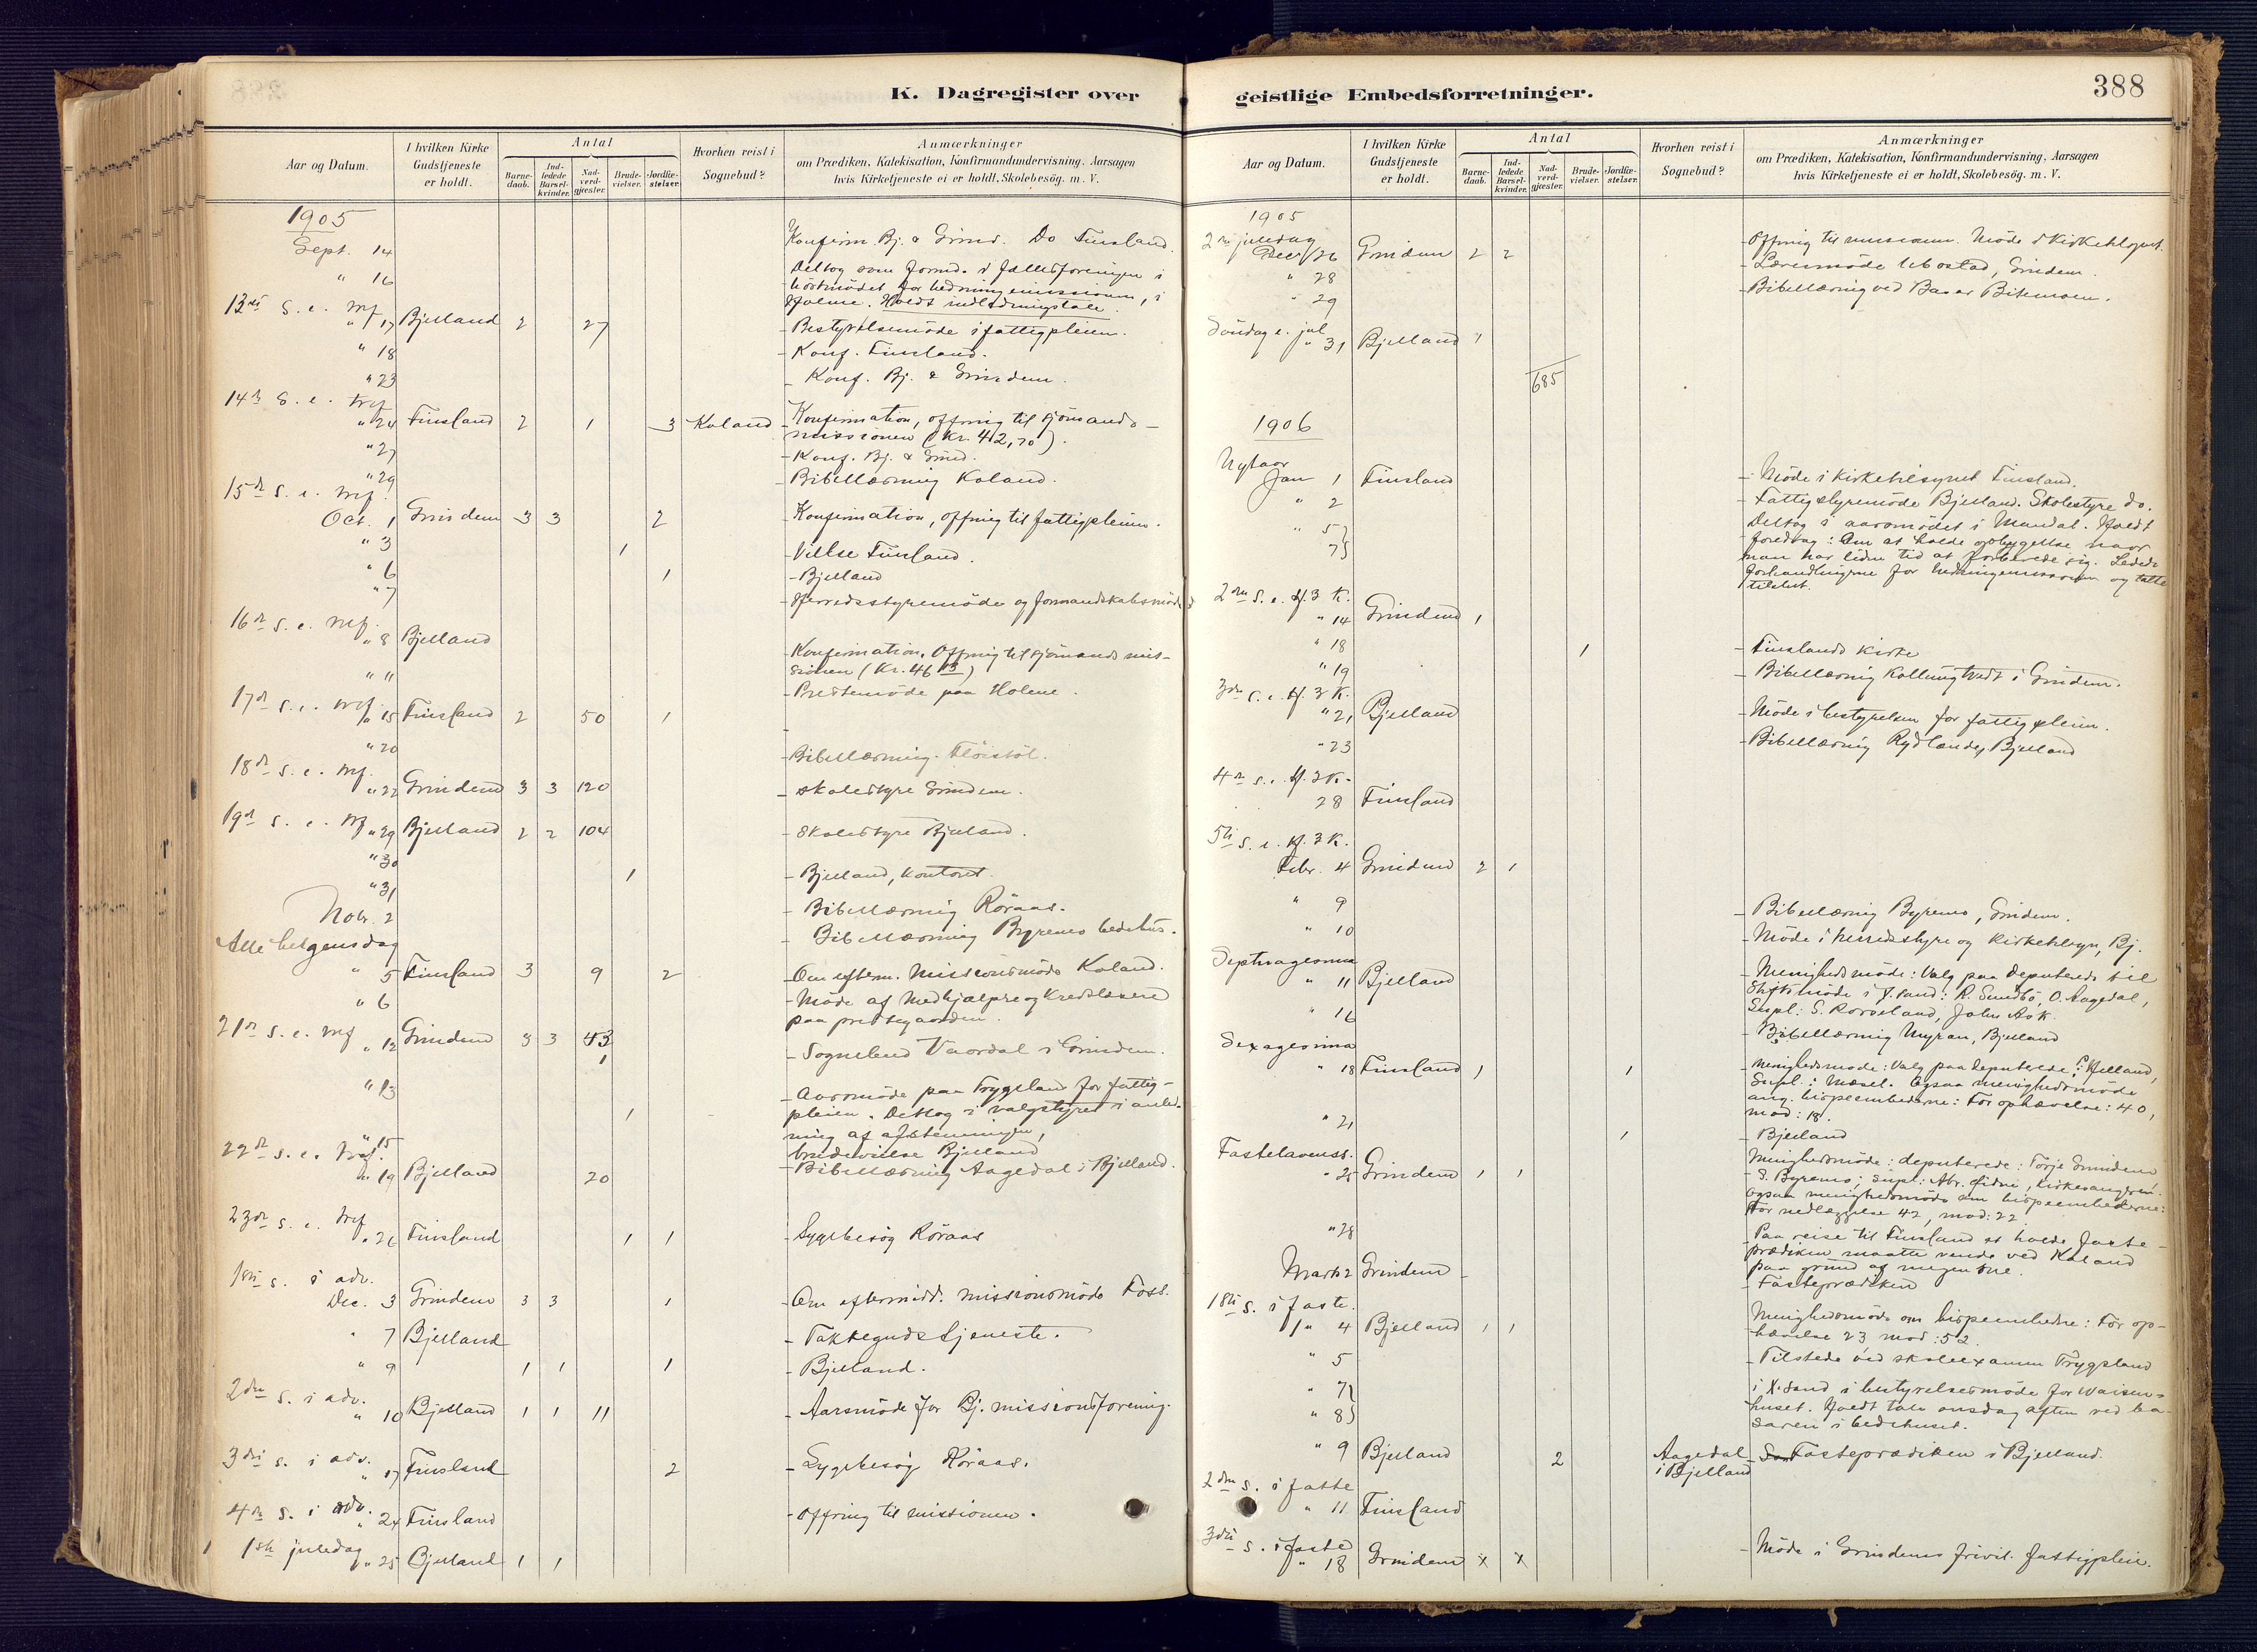 K. Dagregister over
Aar og Datum.
I hvilken Kirke
Gudstjeneste
er holdt.
Antal
Barne-
daab.
Ind-
ledede
Barsel-
kvinder.
Nad-
verd-
gjæster.
Brude-
vielser.
Jordfæ-
stelser.
Hvorhen reist i
Sognebud?
Anmærkninger
om Prædiken, Katekisation, Konfirmandundervisning, Aarsagen
hvis Kirketjeneste ei er holdt, Skolebesøg. m. V.
1905
Sept. 14 Konfirm Bj. & Grind. Do Finsland.
" 16 Deltog som formd. i fællesforeningen i
høstmødet for hedningemissionen, i
Holme. Holdt indledningstale.
13de S. e. tref
" 17 Bjelland 2 27 - Bestyrelsemøde i fattigpleien.
" 18 - Konf. Finsland.
" 23 - Konf. Bj. & Grindem.
14de S. e. tref
" 24 Finsland 2 1 3 Koland - Konfirmation, offring til sjømands-
missionen (Kr. 42,70).
" 27 - Konf. Bj. & Grind.
" 29 - Bibellæsning Koland.
15de S. e. tref.
Oct. 1 Grindem 3 3 2 - Konfirmation, offring til fattigpleien.
" 3 1 - Vielse Finsland.
" 6 1 - Bjelland
" 7 - Herredsstyremøde og formandskabsmøde
16de S. e. tref.
" 8 Bjelland - Konfirmation. Offring til sjømandsmis-
sionen (Kr. 46 13)
" 11 - Prestemøde paa Holme.
17de S. e. tref.
" 15 Finsland 2 50 1
" 20 - Bibellæsning. Fløistøl.
18de S. e. tref.
" 22 Grindem 3 3 120 - skolestyre Grindem.
19de S. e. tref
" 29 Bjelland 2 2 104 - Skolestyre Bjelland.
" 30 1 - Bjelland, kontoret.
" 31 - Bibellæsning Røraas.
Nobr. 2 - Bibellæsning Byremo bedehus.
Alle helgensdag
" 5 Finsland 3 9 2 - Om efterm. missionsmøde Koland.
" 6 - Møde af Medhjælpre og kredslæsere
paa prestegaarden.
21de S. e. tref
" 12 Grindem 3 3 43 - Sognebud Vaardal i Grindem.
1
" 13 - Aarsmøde paa Trygsland for fattig-
pleien. Deltog i valgstyret i anled-
1 ning af afstemningen,
brudevielse Bjelland
" 15 - Bibellæsning Aagedal i Bjelland.
22de S. e. tref.
" 19 Bjelland 20
23de S. e. tref
" 26 Finsland 1 1 - Sygebesøg Røraas
1ste S. i adv.
Dec. 3 Grindem 3 3 1 - Om eftermidd. missionsmøde Foss.
" 7 Bjelland - Takkegudstjeneste.
" 9 1 1 1 - Bjelland.
2den S. i adv.
" 10 Bjelland 1 1 11 - Aarsmøde for Bj. missionsforening.
3die S. i adv.
" 17 Finsland 2 - Sygebesøg Røraas.
4de S. i adv.
" 24 Finsland - offring til missionen.
1ste juledag
" 25 Bjelland 1 1
geistlige Embedsforretninger.
388
Aar og Datum.
I hvilken Kirke
Gudstjeneste
er holdt.
Antal
Barne-
daab.
Ind-
ledede
Barsel-
kvinder.
Nad-
verd-
gjæster.
Brude-
vielser.
Jordfæ-
stelser.
Hvorhen reist i
Sognebud?
Anmærkninger
om Prædiken, Katekisation, Konfirmandundervisning, Aarsagen
hvis Kirketjeneste ei er holdt, Skolebesøg. m. V.
1905
2den juledag
Dec. 26 Grindem 2 2 - Offring til missionen. Møde i Kirketilsynet.
" 28 - Læsermøde Ubostad, Grindem.
" 29 - Bibellæsning ved
Søndag e. jul
" 31 Bjelland 1
685
1906
Nytaar
Jan 1 Finsland - Møde i kirketilsynet Finsland.
" 2 - Fattigstyremøde Bjelland. Skolestyre do.
" 5 Deltog i aarsmødet i Mandal. Holdt
7 foredrag: Om at holde opbyggelse naar
man har liden tid at forberede sig. Ledede
forhandlingerne for hedningemissionen og talte
tilslut.
2den S. e. H. 3 K.
" 14 Grindem 1
" 18 1 - Finslands kirke
" 19 - Bibellæsning Kollungtvedt i Grindem.
3die S. e. H. 3 K.
" 21 Bjelland - Møde i bestyrelsen for fattigpleien.
" 23 - Bibellæsning Rydland, Bjelland
4de S. e. H. 3 K.
28 Finsland
5te S. e. H. 3 K.
Febr. 4 Grindem 2 1
" 9 - Bibellæsning Byremo, Grindem.
" 10 - Møde i herredsstyre og kirketilsyn, Bj.
Septuagesima
" 11 Bjelland - Menighedsmøde: Valg paa deputerede til
Stiftsmøde i X.sand: R. Sundbø, O. Aagedal,
Supl: S. Rorveland, John Ask.
" 16 - Bibellæsning Myran, Bjelland
Sexagesima
" 18 Finsland 1 1 - Menighedsmøde: Valg paa deputerede:
Supl: Ogsaa menighedsmøde
ang. bispeembederne: For ophævelse: 40,
mod: 18.
" 21 1 - Bjelland
Fastelavenss.
" 25 Grindem 1 1 Menighedsmøde: deputerede: Torje Grindem
- S. Byremo; supl: Abr. Eidni, kirkesangeren.
Ogsaa menighedsmøde om bispeembederne:
For nedlæggelse 42, mod: 22.
" 28 - Paa reise til Finsland at holde faste-
prædiken maatte vende ved Koland
paa grund af megen sne.
Marts 2 Grindem - Fasteprædiken
1ste S. i faste.
" 4 Bjelland 1 1 Menighedsmøde om bispeembedne: For op-
hævelse 23 mod: 52.
" 5 - Tilstede ved skoleexamen Trygsland
" 7 i X.sand i bestyrelsesmøde for Waisen-
" 8 huset. Holdt tale onsdag aften ved ba-
saren i bedehuset.
" 9 Bjelland 2 Aagedal i Bjelland - Fasteprædiken i Bjelland.
2den S. i faste
" 11 Finsland
3die S. i faste
" 18 Grindem x x - Møde i Grindems frivil. fattigpleie.